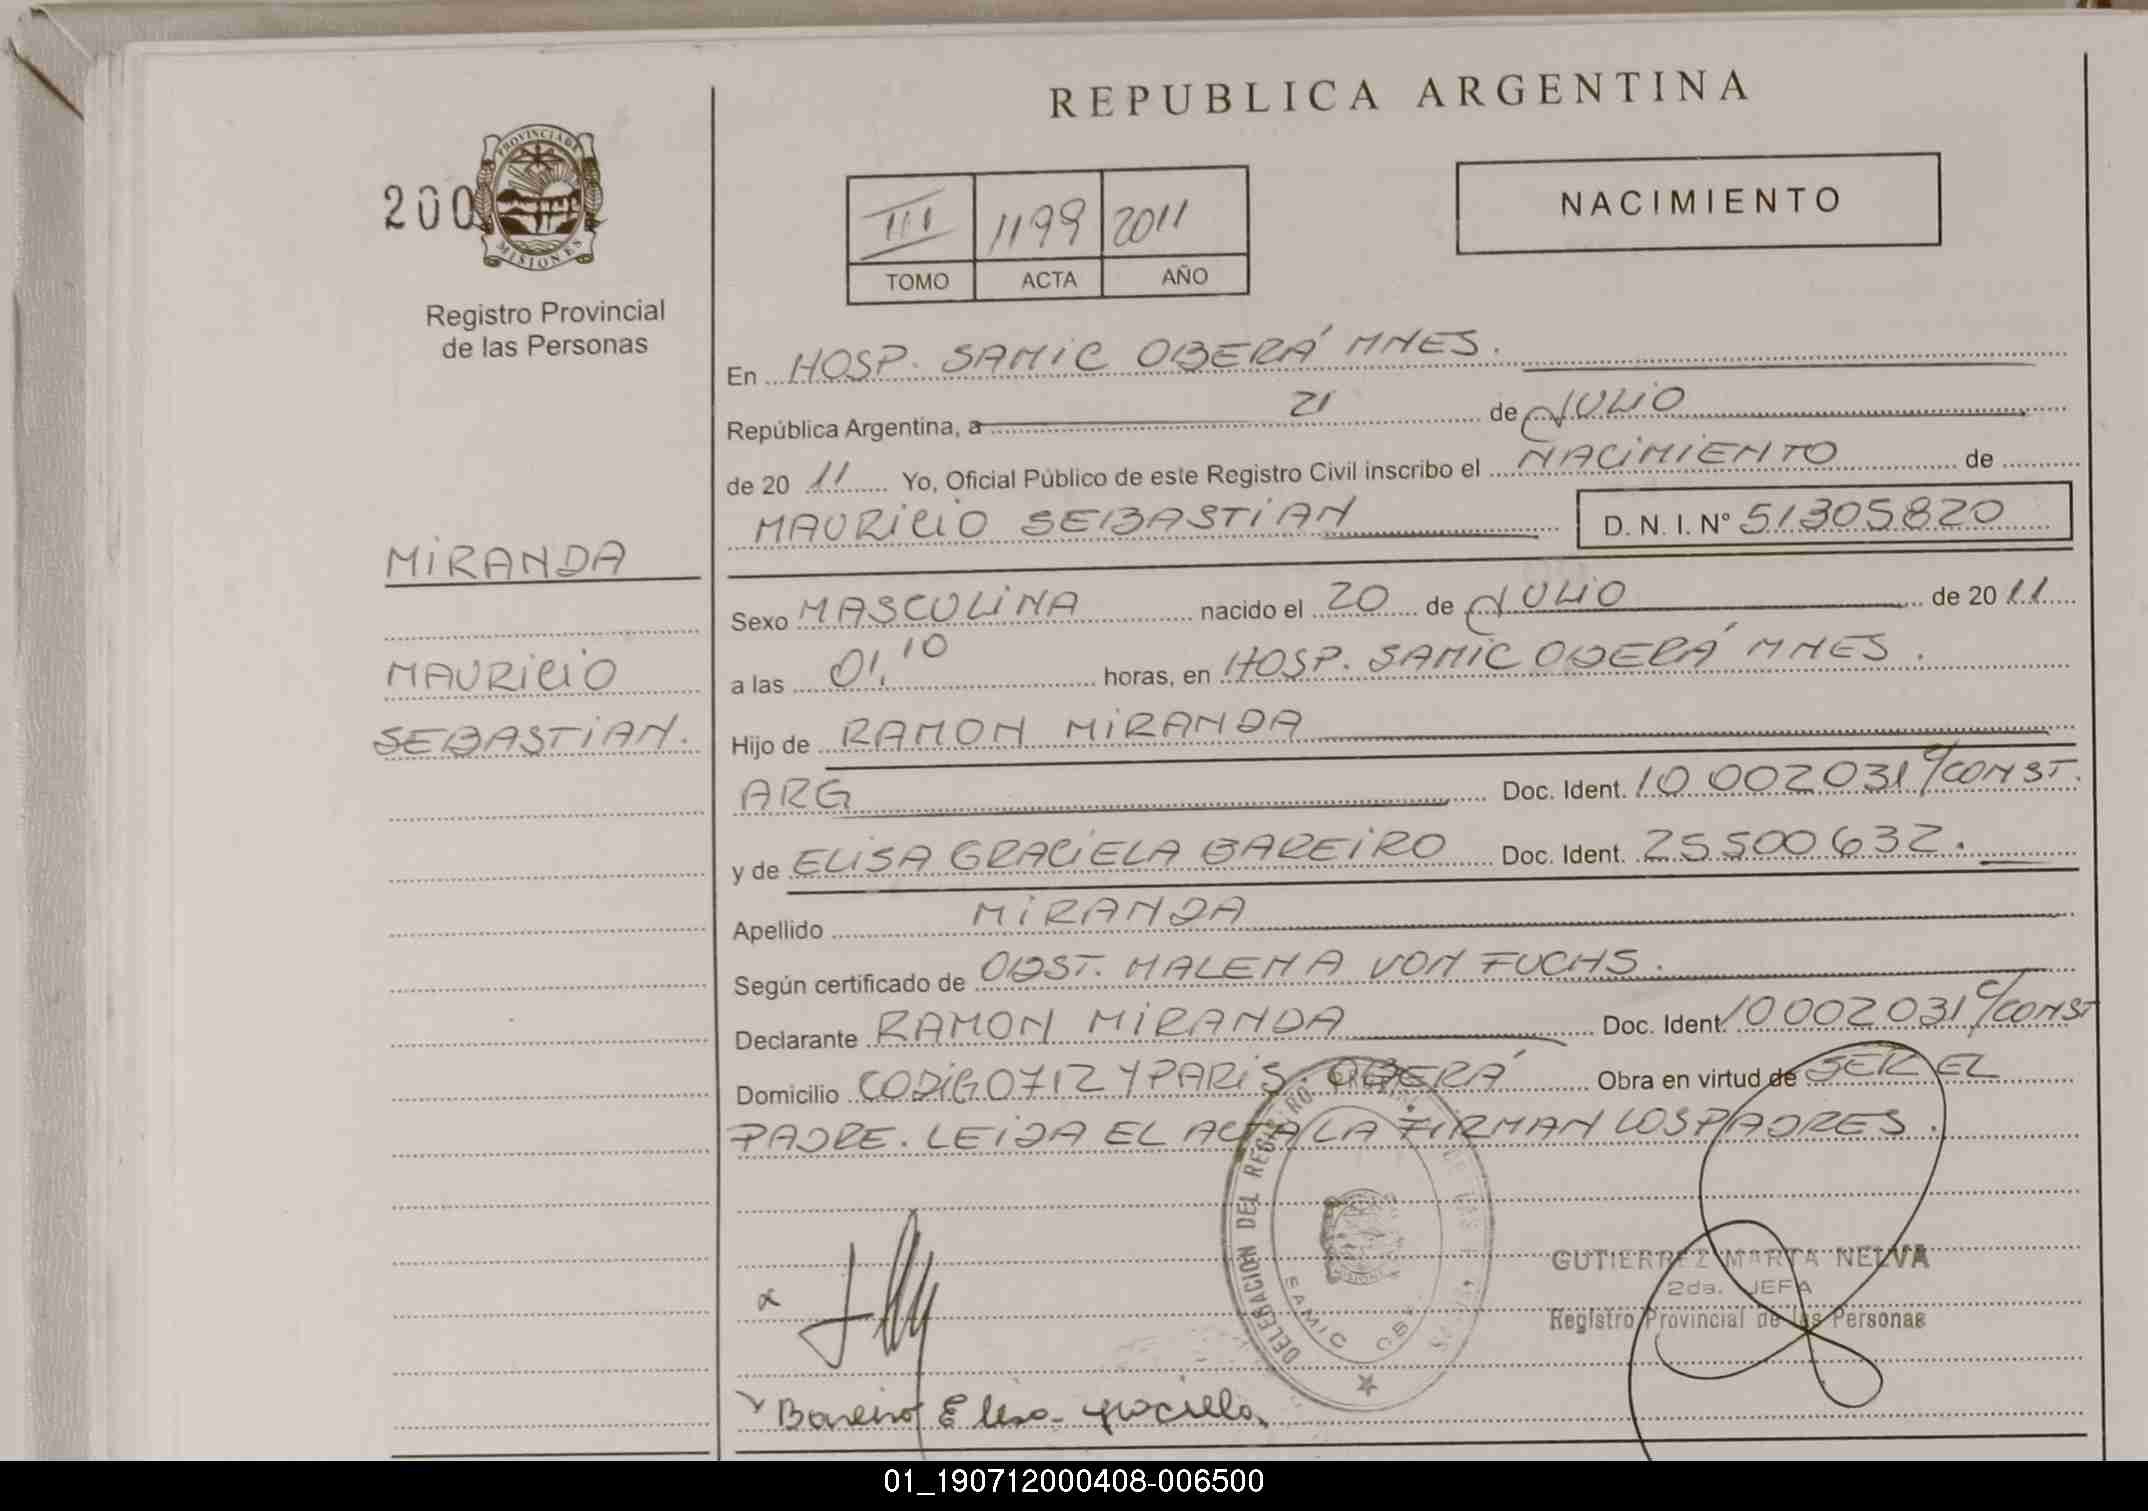 REPUBLICA ARGENTINA
200
PROVINCIA DE
MISIONES
Registro Provincial
de las Personas
III 1199 2011
TOMO ACTA AÑO
NACIMIENTO
En HOSP. SAMIC OBERÁ MNES.
República Argentina, a 21 de JULIO
de 20 11 Yo, Oficial Público de este Registro Civil inscribo el NACIMIENTO de
MAURICIO SEBASTIAN D. N. I. Nº 51305820
MIRANDA
MAURICIO
SEBASTIAN.
Sexo MASCULINA nacido el 20 de JULIO de 20 11
a las 01,10 horas, en HOSP. SAMIC OBERÁ MNES.
Hijo de RAMON MIRANDA
ARG Doc. Ident. 10 002 031 c/CONST.
y de ELISA GRACIELA BAREIRO Doc. Ident. 25500632.
Apellido MIRANDA
Según certificado de OBST. MALENA VON FUCHS.
Declarante RAMON MIRANDA Doc. Ident. 10002031 c/CONST
Domicilio CODIGO 712 Y PARIS. OBERÁ Obra en virtud de SER EL
PADRE. LEIDA EL ACTA LA FIRMAN LOS PADRES.
DELEGACION DEL REGISTRO
SAMIC
GUTIERREZ MARTA NELVA
2da. JEFA
Registro Provincial de las Personas
Bareiro Elisa graciela
01_190712000408-006500